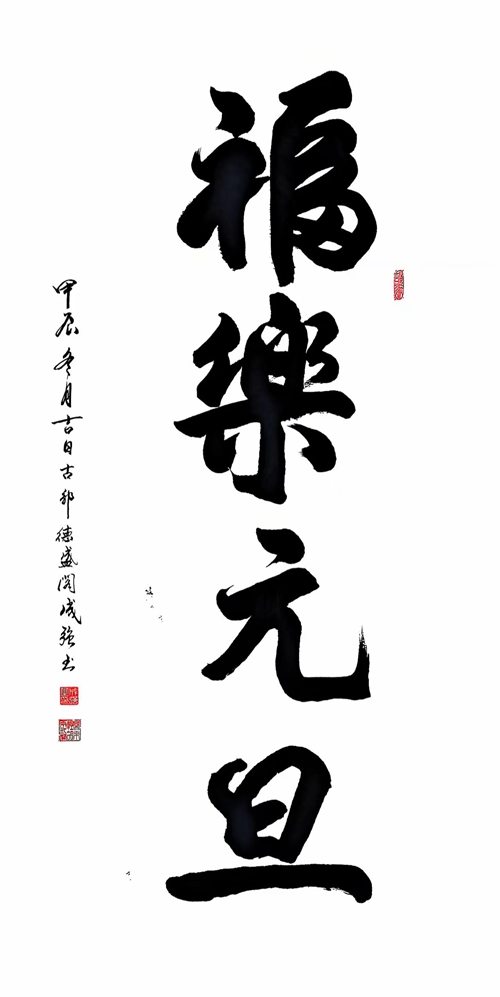 福樂元旦
甲辰冬月吉日古邿德盛閣成強书